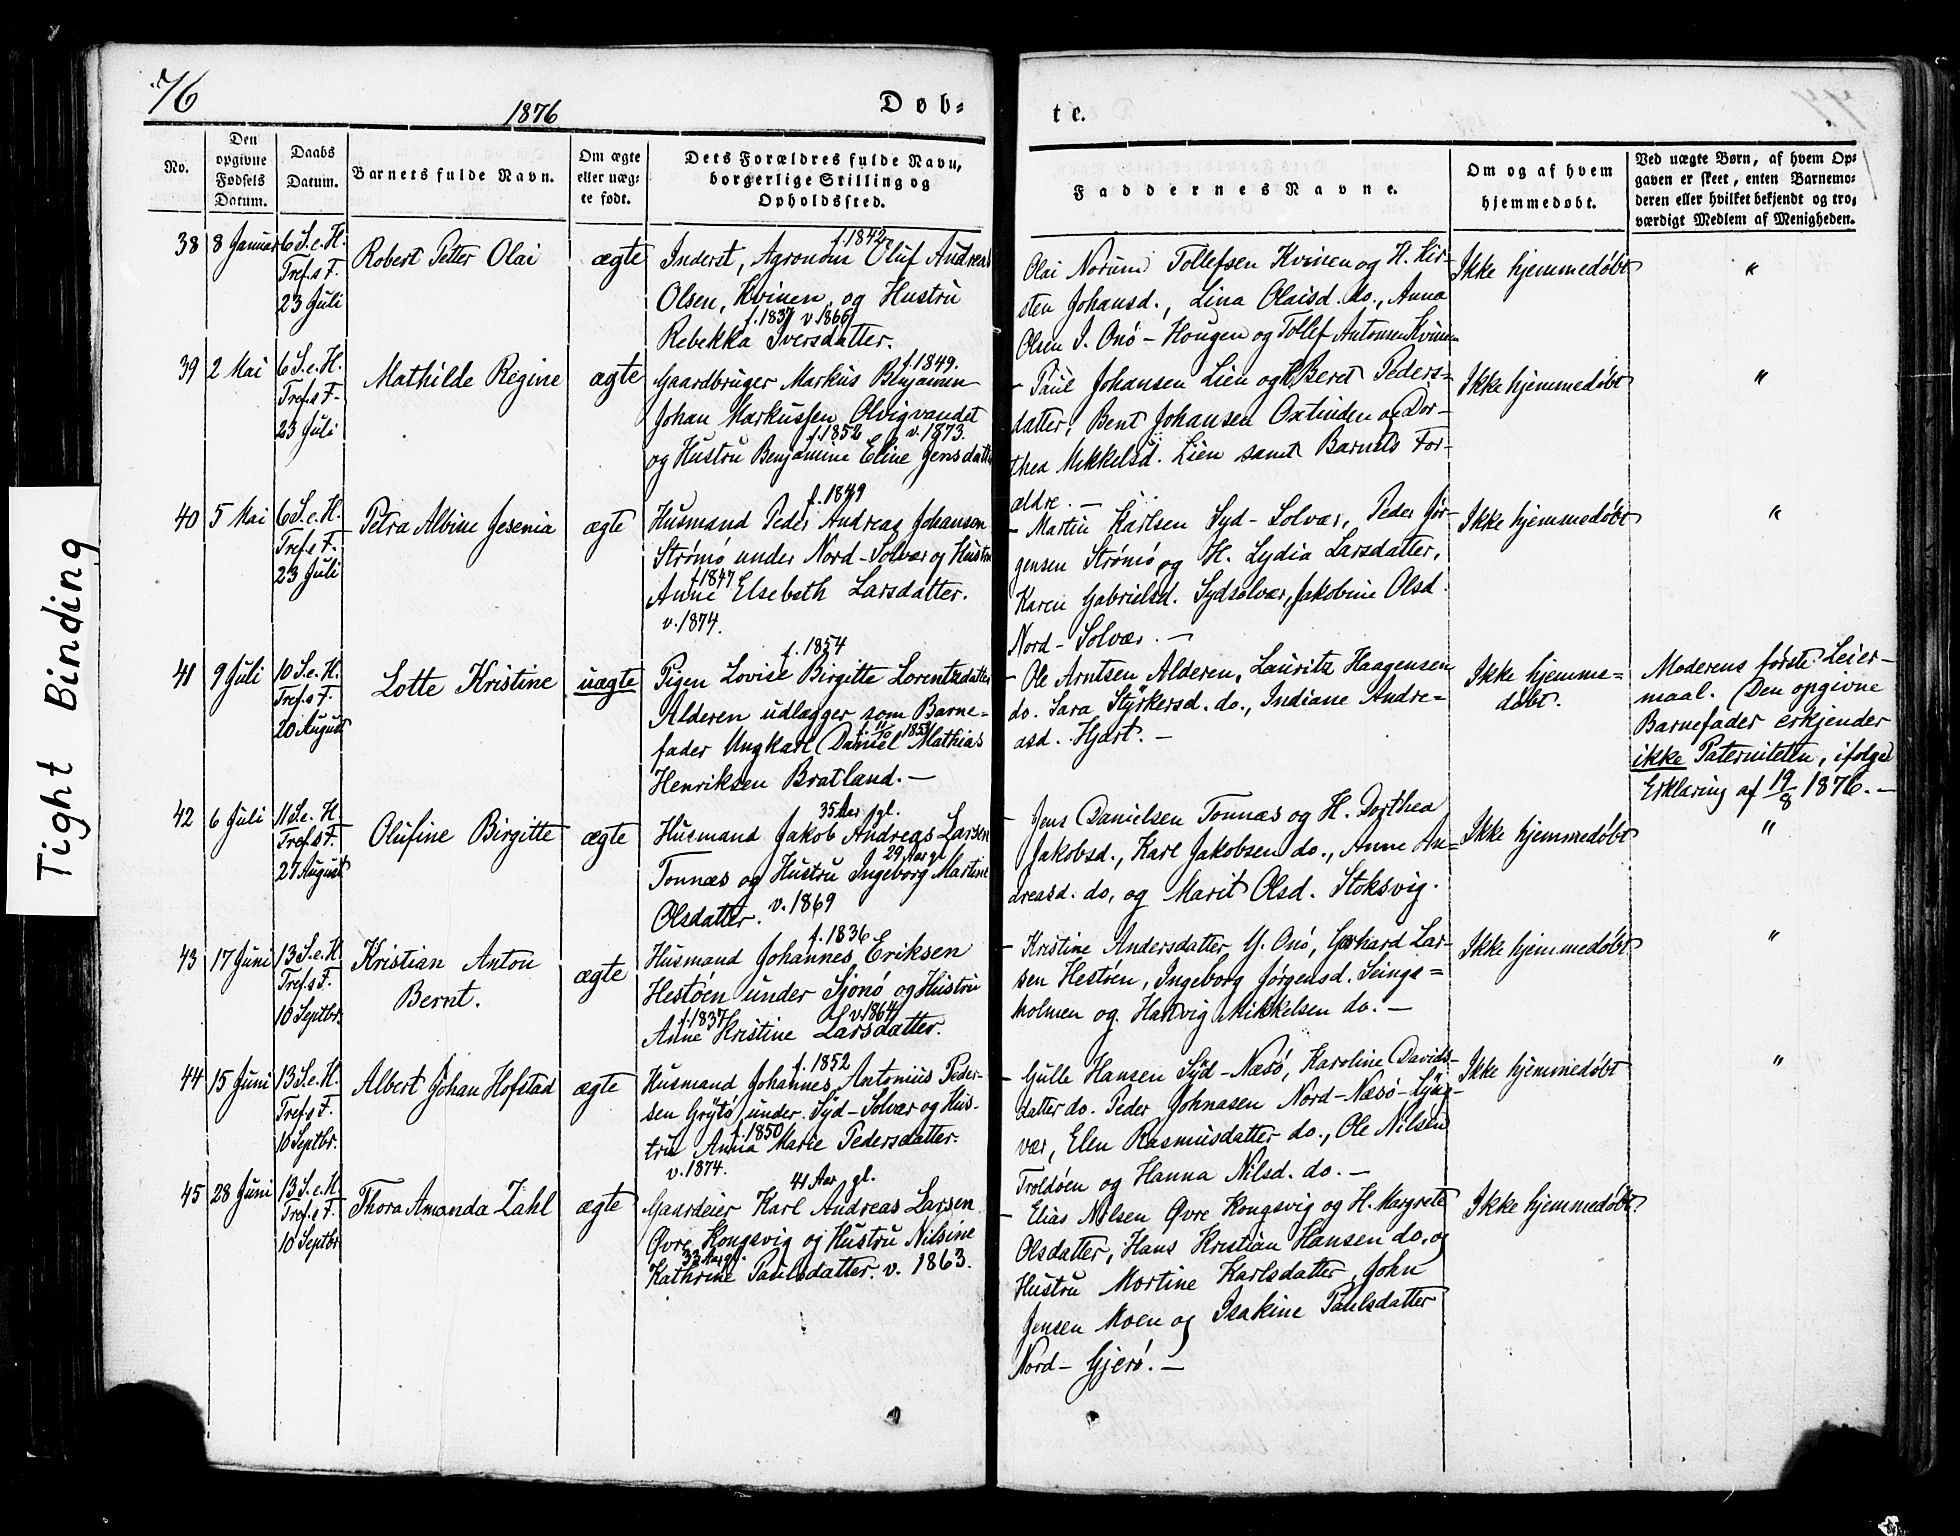 76
1876
Døb-
te.
No.
Den opgivne Fødsels Datum.
Daabs Datum.
Barnets fulde Navn.
Om ægte eller uæg- te født.
Dets Forældres fulde Navn, borgerlige Stilling og Opholdssted.
Faddernes Navne.
Om og af hvem hjemmedøbt.
Ved uægte Børn, af hvem Op- gaven er skeet, enten Barnemo- deren eller hvilket bekjendt og tro- værdigt Medlem af Menigheden.
Tight Binding
38
8 Januar
6 S. e. H.
Tref. s F.
23 Juli
Robert Petter Olai
ægte
f. 1842
Inderst, Agronom Oluf Andreas
Olsen, Kvinen, og Hustru
f. 1837 v. 1866
Rebekka Iversdatter.
Olai Norum Tollefsen Kvinen og H. Kir-
sten Johansd., Lina Olaisd. do., Anna
Olsen I. Onø - Hougen og Tollef Antonsen Kvinen
Ikke hjemmedøbt
"
39
2 Mai
6 S. e. H.
Tref. s F.
23 Juli
Mathilde Regine
ægte
f. 1849.
Gaardbruger Markus Benjamin
Johan Markussen Olvigvandet
f. 1852 v. 1873.
og Hustru Benjamine Eline Jensdatter
- Paul Johansen Lien og H. Beret Peders-
datter, Bent Johansen Oxtinden og Dor-
thea Mikkelsd. Lien samt Barnets For-
ældre. -
Ikke hjemmedøbt
"
40
5 Mai
6 S. e. H.
Tref. s F.
23 Juli
Petra Albine Jesenia
ægte
f. 1849
Husmand Peder Andreas Johansen
Strømø under Nord-Solvær og Hustru
f. 1847
Anne Elsebeth Larsdatter.
v. 1874.
- Martin Karlsen Syd-Solvær, Peder Jør-
gensen Strømø og H. Lydia Larsdatter,
Karen Gabrielsd. Sydsolvær, Jakobine Olsd.
Nord-Solvær. -
Ikke hjemmedøbt
"
41
9 Juli
10 S. e. H.
Tref. s F.
20 August
Lotte Kristine
uægte
f. 1854
Pigen Lovise Birgitte Lorentsdatter
Alderen udlægger som Barne-
fader Ungkarl Daniel Mathias
Henriksen Bratland. -
- Ole Arntsen Alderen, Lauritz Haagensen
do. Sara Styrkersd. do., Indiane Andre-
asd. Hjart. -
Ikke hjemme-
døbt.
Moderens første Leier-
maal. Den opgivne
Barnefader erkjender
ikke Paterniteten, ifølge
Erklæring af 19/8 1876. -
42
6 Juli
11 S. e. H.
Tref. s F.
27 August
Olufine Birgitte
ægte
35 Aar gl.
Husmand Jakob Andreas Larsen
29 Aar gl
Tonnæs og Hustru Ingeborg Martine
Olsdatter. v. 1869
- Jens Danielsen Tonnæs og H. Dorthea
Jakobsd., Karl Jakobsen do., Anne An-
dreasd. do, og Marit Olsd. Stoksvig.
Ikke hjemmedøbt
"
43
17 Juni
13 S. e. H.
Tref. s F.
10 Septbr.
Kristian Anton
Bernt.
ægte
f. 1836
Husmand Johannes Eriksen
Hestøen under Sjonø og Hustru
f. 1837 v. 1864
Anne Kristine Larsdatter.
- Kristine Andersdatter Y. Onø, Gerhard Lar-
sen Hestøen, Ingeborg Jørgensd. Seinge-
holmen og Hartvig Mikkelsen do. -
Ikke hjemmedøbt
"
44
15 Juni
13 S. e. H.
Tref. s F.
10 Septbr.
Albert Johan Hofstad
ægte
f. 1852
Husmand Johannes Antonius Peder-
sen Grytø, under Syd-Solvær og Hus-
f. 1850
tru Anna Marie Pedersdatter.
v. 1874.
- Gulle Hansen Syd-Næsø, Karoline Davids-
datter do. Peder Johnasen Nord-Næsø-Lyng-
vær, Elen Rasmusdatter do., Ole Nilsen
Troldøen og Hanna Nilsd. do. -
Ikke hjemmedøbt
"
45
28 Juni
13 S. e. H.
Tref. s F.
10 Septbr.
Thora Amanda Zahl
ægte
41 Aar gl.
Gaardeier Karl Andreas Larsen
Øvre Kongsvig og Hustru Nilsine
33 Aar gl.
Kathrine Paulsdatter. v. 1863.
- Elias Nilsen Øvre Kongsvig og H. Margrete
Olsdatter, Hans Kristian Hansen do, og
Hustru Martine Karlsdatter, John
Jensen Moen og Isakine Paulsdatter
Nord-Gjerø. -
Ikke hjemmedøbt